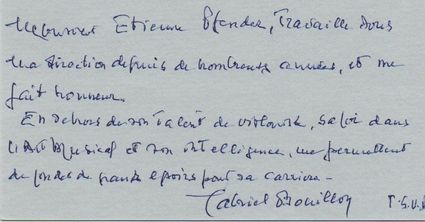 Monsieur Etienne Pfender, travaille sous
ma direction depuis de nombreuses années, et me
fait honneur.
En dehors de son talent de violoniste, sa foi dans
l'Art Musical et son intelligence, me permettent
de fonder de grands espoirs pour sa carrière -
Gabriel Bouillon
T.S.V.